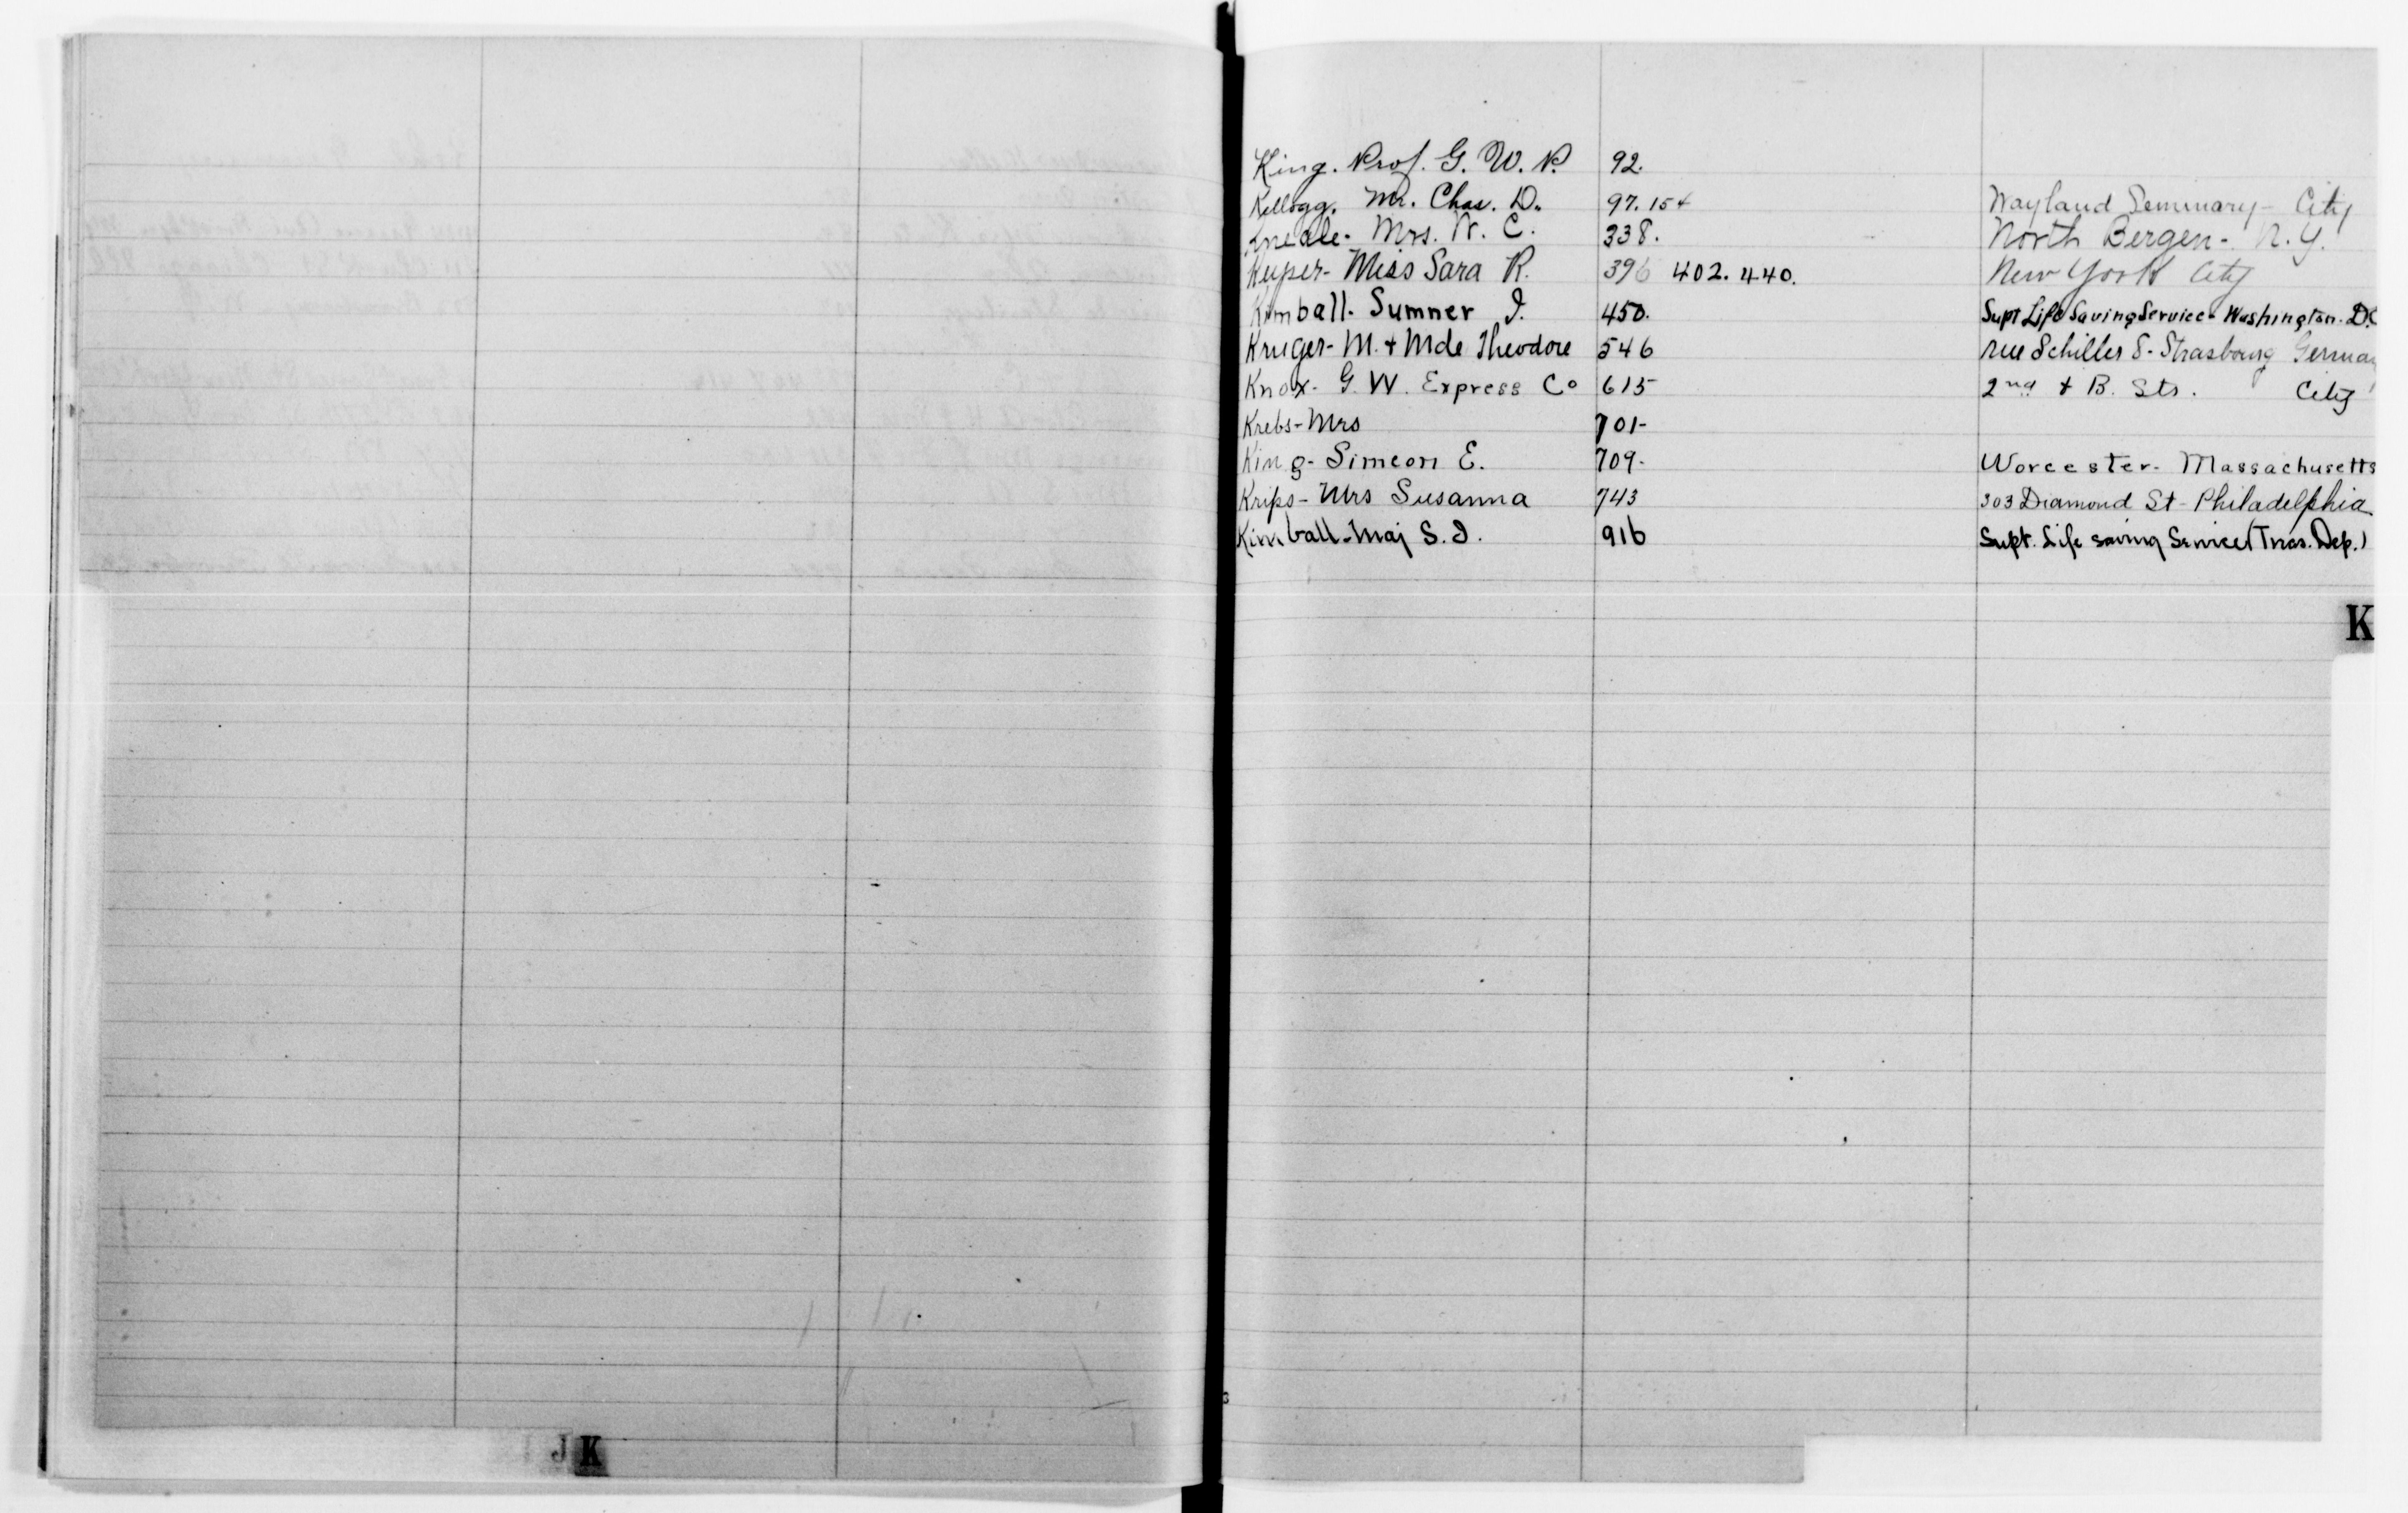 King. Prof. G. W. P. 92.
Kellogg. Mr. Chas. D. 97. 154 Wayland Seminary - City
Kneale - Mrs. W. C. 338. North Bergen - N. Y.
Kuper - Miss Sara R. 396 402. 440. New York City
Kimball. Sumner I. 450. Supt Life Saving Service - Washington. D.C
Kruger - M. + Mde Theodore 546 rue Schiller 8 - Strasbourg German
Knox - G. W. Express Co 615 2nd + B. Sts. City
Krebs - Mrs 701-
King - Simeon E. 709- Worcester - Massachusetts
Krips - Mrs Susanna 743 303 Diamond St - Philadelphia
Kimball - Maj S. I. 916 Supt. Life saving Service (Treas. Dep.)
K
J K